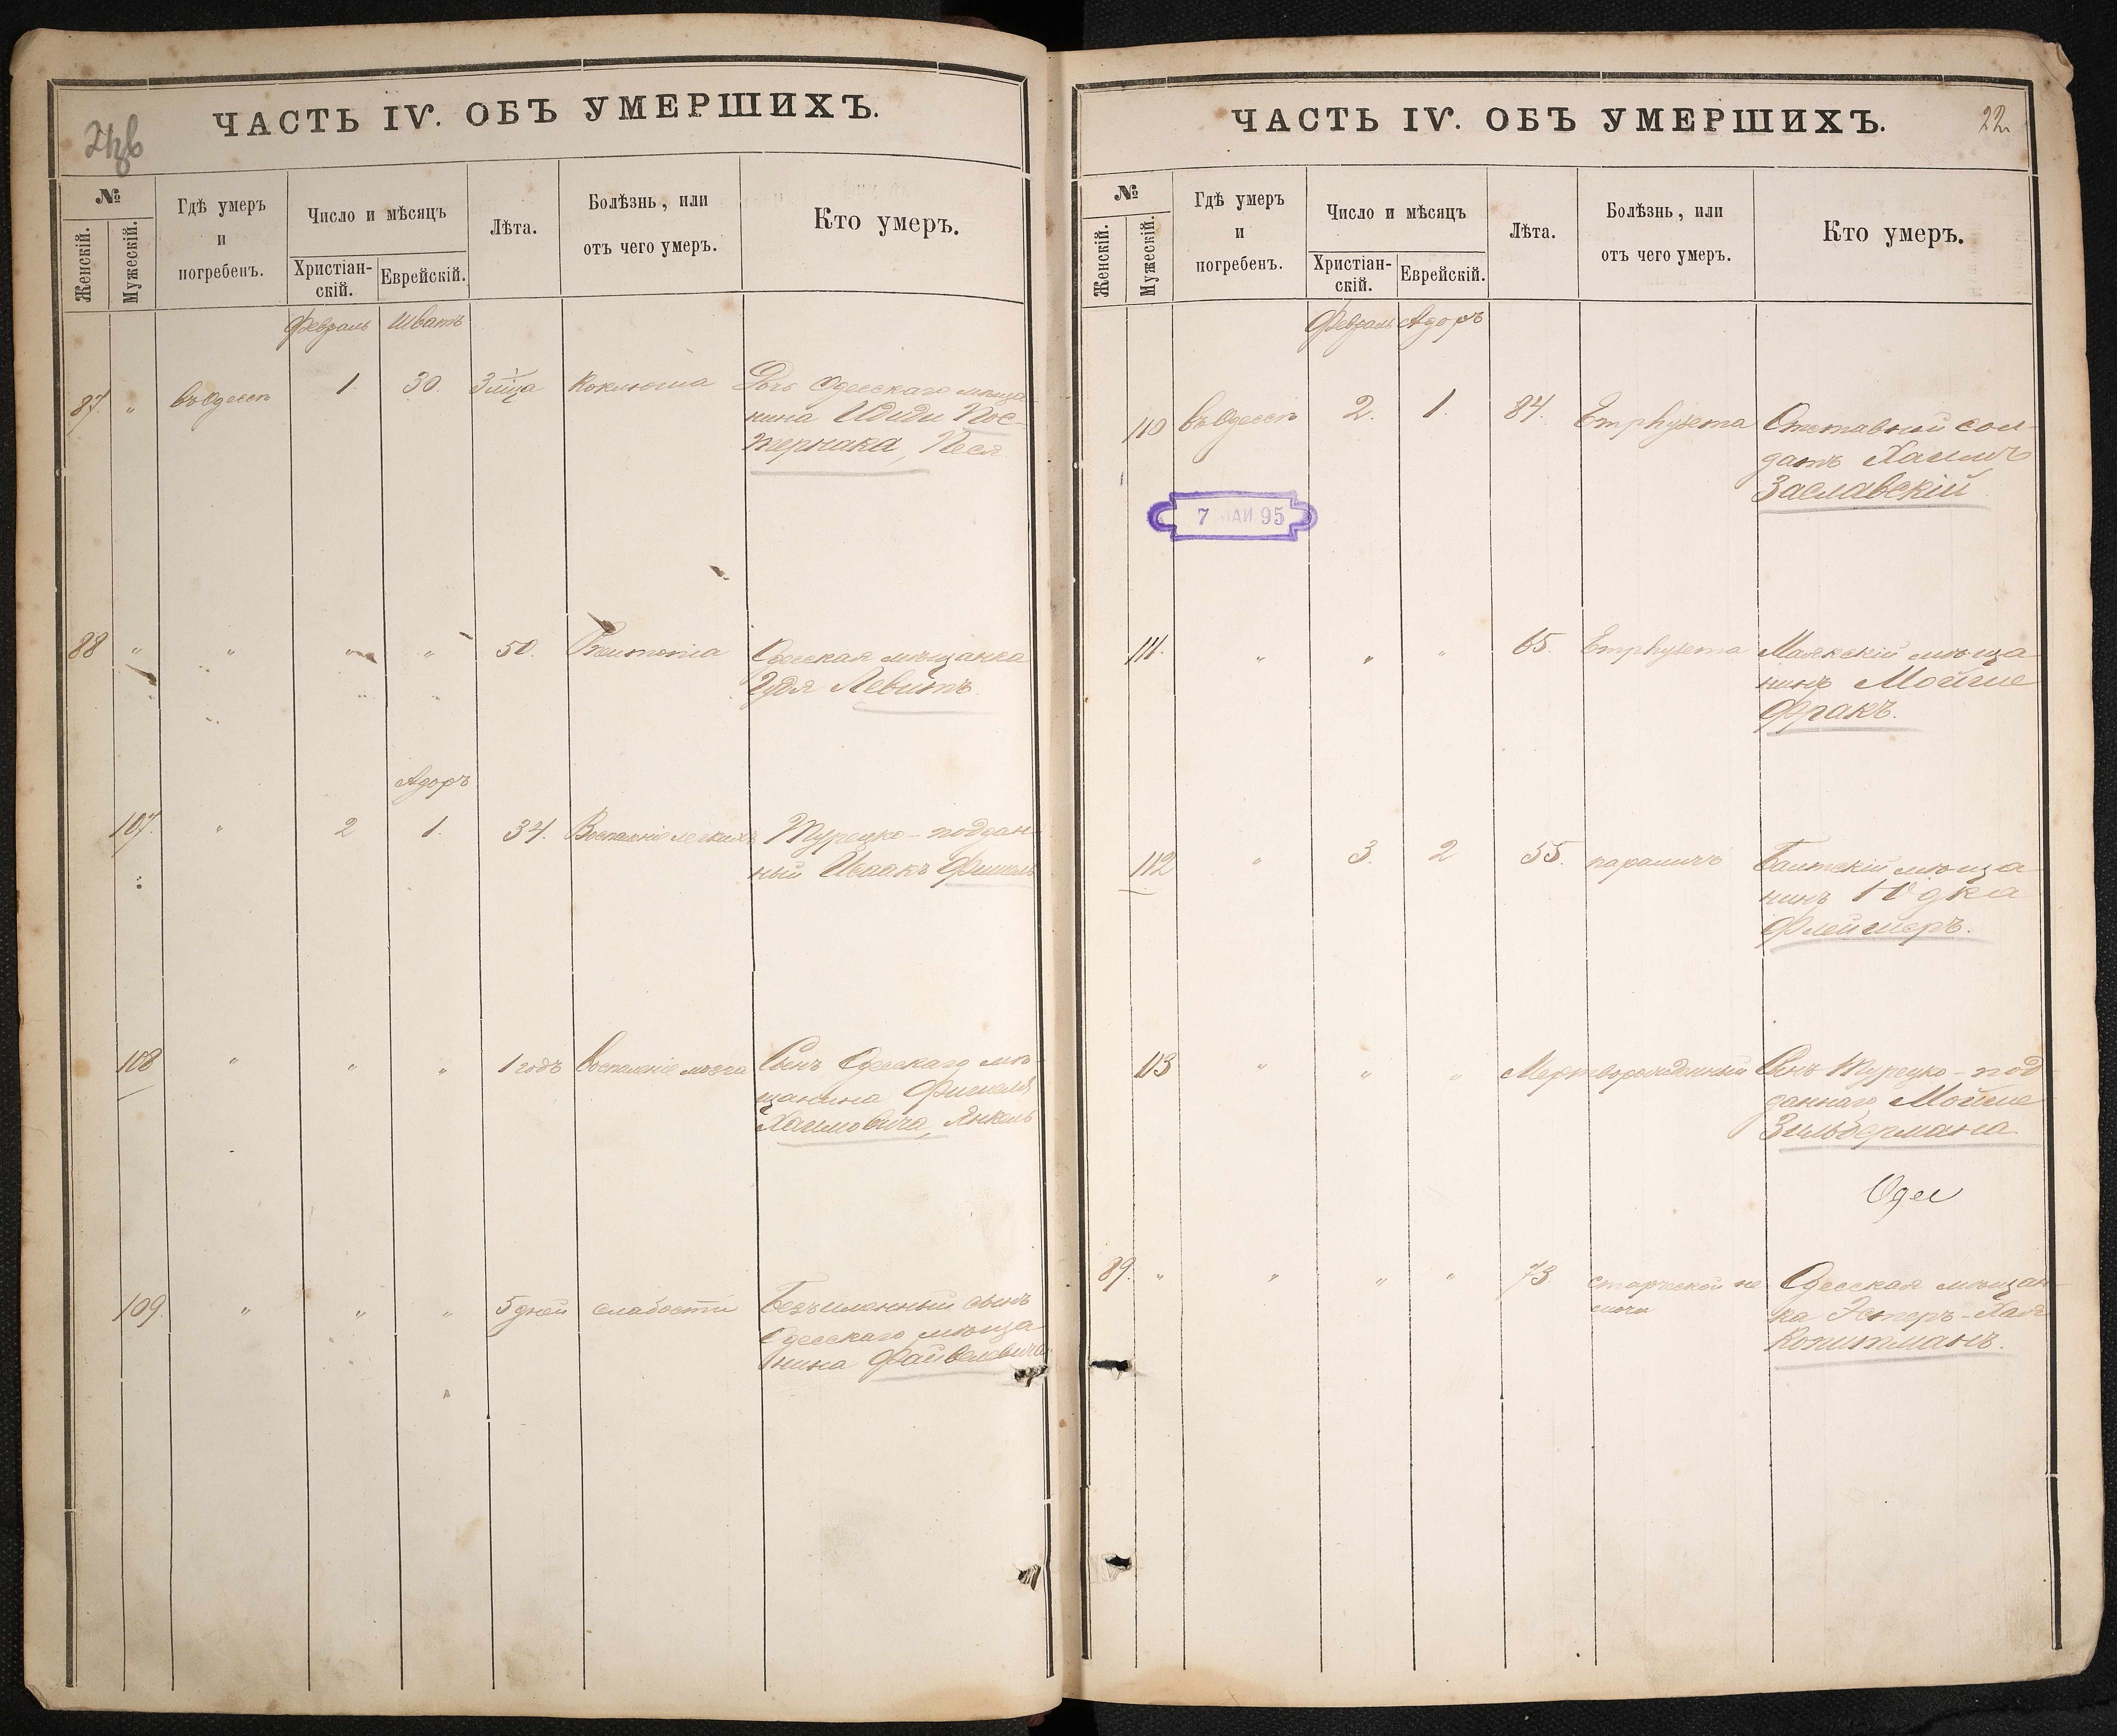 ЧАСТЬ IV. ОБЪ УМЕРШИХЪ.
№
Женскій.
Мужескій.
Гдѣ умеръ
и
погребенъ.
Число и мѣсяцъ
Христіан-
скій.
Еврейскій.
Лѣта.
Болѣзнь, или
отъ чего умеръ.
Кто умеръ.
Февраль Шватъ
87. " въ Одессѣ 1. 30. 3 м-ца Коклюша Дочь Одесскаго мѣща-
нина Иоиди Пас-
тернака, Песя
88 " " " " 50. Pneumonia Одесская мѣщанка
Гудя Левитъ.
Адоръ
107. " 2 1. 34. Воспаленіе легкихъ Турецко-поддан-
ный Исаакъ Фишель
108 " " " 1 годъ Воспаленіе мозга Сынъ Одесскаго мѣ-
щанина Фишеля
Хаимовича, Янкель
109 " " " 5 дней слабости Безъименный сынъ
Одесскаго мѣща
нина Файвелевича
ЧАСТЬ IV. ОБЪ УМЕРШИХЪ.
22
№
Женскій.
Мужескій.
Гдѣ умеръ
и
погребенъ.
Число и мѣсяцъ
Христіан-
скій.
Еврейскій.
Лѣта.
Болѣзнь, или
отъ чего умеръ.
Кто умеръ.
Февраль Адоръ
110 въ Одессѣ 2. 1. 84. Emphysema Отставной сол-
датъ Хаимъ
Заславскій
7 МАЙ 95
111. " " " 65. Emphysema Маякскій мѣща
нинъ Мойше
Фракъ.
112 " 3. 2 55. параличъ Балтскій мѣща-
нинъ Юдка
Флейшеръ.
113 " " " Мертворожденный Сынъ Турецко-под
даннаго Мойше
Зильбермана
Одес
89. " " " " 73 старческой не
мочи Одесская мѣщан-
ка Эстеръ-Хая
Копитманъ.